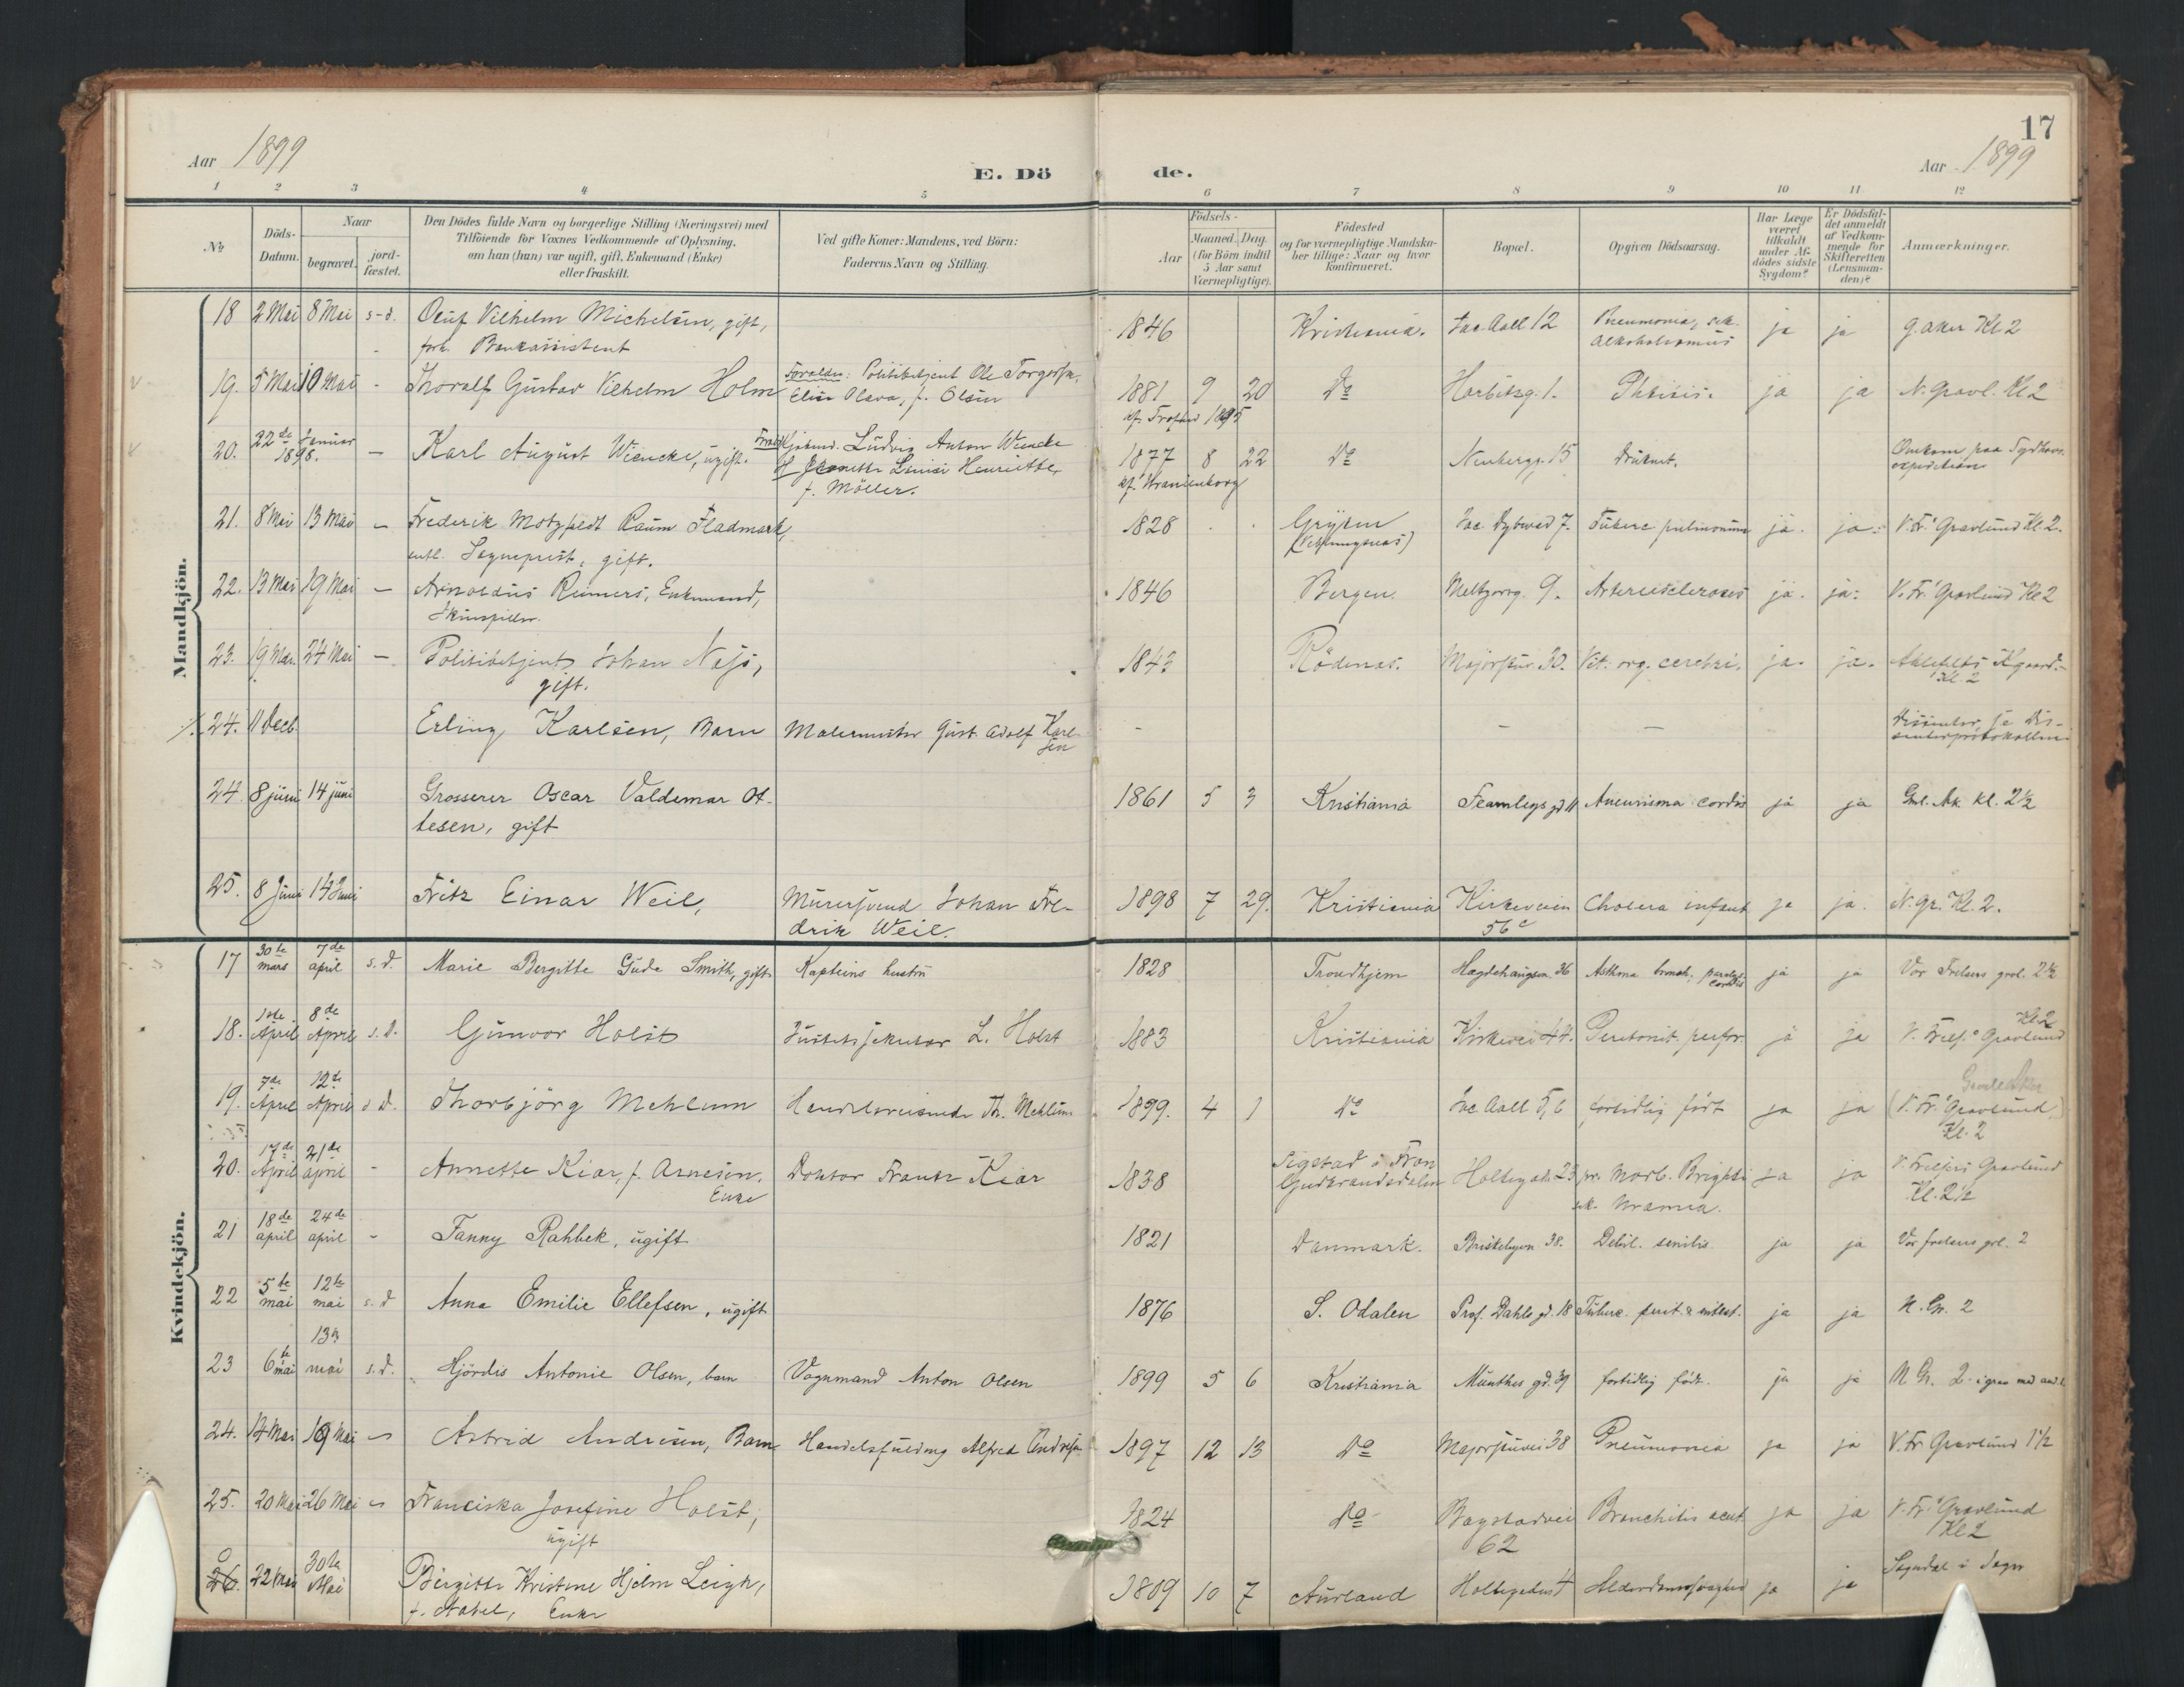 17
Aar 1899
E. Dö de.
Aar 1899
1 2 3 4 5 6 7 8 9 10 11 12
No
Döds-Datum.
Naar
begravet.
jord-fæstet.
Den Dödes fulde Navn og borgerlige Stilling (Næringsvei) med
Tilföiende for Voxnes Vedkommende af Oplysning,
om han (hun) var ugift, gift, Enkemand (Enke)
eller fraskilt.
Ved gifte Koner: Mandens, ved Börn:
Faderens Navn og Stilling.
Födsels-
Aar
Maaned. Dag.
(for Börn indtil
5 Aar samt
Værnepligtige).
Födested
og for værnepligtige Mandska-
ber tillige: Naar og hvor
konfirmeret.
Bopæl.
Opgiven Dödsaarsag.
Har Læge
været
tilkaldt
under Af-
dödes sidste
Sygdom?
Er Dödsfal-
det anmeldt
af Vedkom-
mende for
Skifteretten
(Lensman-
den)?
Anmærkninger.
Mandkjön.
18 2 Mai 8 Mai s-d. Oluf Vilhelm Michelsen, gift, 1846 Kristiania. Jac Aall 12 Pneumonia, sek. ja ja G. Aker Kl 2
forh. Bankassistent alkoholismus
19. 5 Mai 10 Mai - Thoralf Gustav Vilhelm Holm Forældre: Politibetjent Ole Torgersen, 1881 9 20 Do Harbitzg. 1. Phthisis. ja ja N. Gravl. Kl 2
Elise Olava, f. Olsen 1895
20. 22de Januar 1898. - Karl August Wiencke, ugift. Ludvig Anton Wiencke 1877 8 22 Do Neubergg. 15 Druknet. Omkom paa Sydhavs-
Jeanette Lovise Henriette, kf. Uranienborg expedition
f. Möller.
21. 8 Mai 13 Mai - Frederik Motzfeldt Raum Fladmark, 1828 Gryten Jac. Dybwad 7. Tuberc pulmonum ja. ja. V. Fr. Gravlund Kl. 2.
entl. Sogneprest, gift. (Veblungsnes)
22. 13 Mai 19 Mai - Arnoldus Reimers, Enkemand, 1846 Bergen. Meltzersg. 9. Arteriosclerosis ja. ja. V. Fr. Gravlund Kl 2
Skuespiller.
23. 19 Mai. 24 Mai - Politibetjent Johan Næss, 1843 Rödenæs. Majorstuv. 30. Vit. org. cerebri. ja. ja.
gift. Kl. 2
24. 11 Decb. Erling Karlsen, Barn Malermester Gust. Adolf Karl- - - - Dissenter, se Dis-
sen senterprotokollen
24 8 juni 14 juni Grosserer Oscar Valdemar Ot- 1861 5 3 Kristiania Fearnleys gd 11 Aneurisma cordis ja ja Gml. Ak kl. 2½
tesen, gift
25. 8 Juni 14 Juni Fritz Einar Weil, Murersvend Johan Fre- 1898 7 29. Kristiania Kirkeveien Cholera infant ja ja. N. gr. Kl. 2.
drik Weil. 56c
Kvindekjön.
17 30te mars 7de april s. d. Marie Bergitte Gude Smith, gift Kapteins hustru 1828 Trondhjem Hægdehaugsv. 36 Asthma bronch, paralys. cordis ja ja Vor Frelsers grvl. 2½
18. 1ste April 8de April s. d. Gunvor Holst L. Holst 1883 Kristiania Kirkevei 44. Peritonit. perfor. ja ja Kl. 2
V. Frels. Gravlund
19. 7de April 12te April s d. Thorbjörg Mehlum Handelsreisende Th. Mehlum 1899. 4 1 Do Jac Aall G, 6 fortidlig född ja ja Gamle Aker
(V. Fr. Gravlund,)
Kl. 2
20. 17de April 21de april - Annette Kiær, f. Arnesen. Doktor Frantz Kiær 1838 Sigstad i Fron Holtegad. 23 gr. Morb. Brighti ja ja V. Frelsers Gravlund
Enke Gudbrandsdalen sek. uræmia. Kl. 2½
21 18de april 24de april - Fanny Rahbek, ugift 1821 Danmark. Briskebyvn 38. Debil. senilis ja ja Vor frelsers grl. 2
22 5te mai 12te mai s. d Anna Emilie Ellefsen, ugift 1876 S. Odalen Prof. Dahls gd. 18 Tuberc. perit. & intest. ja ja N. Gr. 2
23 6te mai 13de mai s. d. Hjördis Antonie Olsen, barn Vognmand Anton Olsen 1899 5 6 Kristiania Munthes gd. 39 fortidlig född. ja ja N. Gr. 2 i grav med
24. 14 Mai 19 Mai - Astrid Andresen, Barn Handelsfuldmg Alfred Andresen 1897 12 13 Do Majorstuvei 38 Pneumonia ja ja V. Fr Gravlund 1½
25. 20 Mai 26 Mai - Franciska Josefine Holst, 1824 Do Bogstadvei Bronchitis acut ja ja V. Fr. Gravlund
ugift 62 Kl 2
26. 22 Mai 30te Mai Birgitte Kristine Hjelm Leigh, 1809 10 7 Aurland Holtegaden 4 Alderdomssvaghed ja ja Sogndal i Sogn
Enke